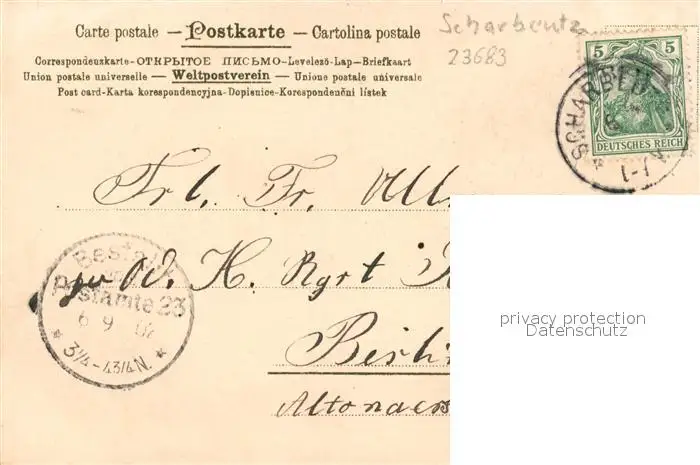 Carte postale — Postkarte — Cartolina postale
Correspondenzkarte-ОТКРЫТОЕ ПИСЬМО-Levelező-Lap-Briefkaart
Union postale universelle — Weltpostverein — Unione postale universale
Post card-Karta korespondencyjna-Dopisnice-Korespondenční lístek
Scharbeutz
23683
5 5
DEUTSCHES REICH
SCHARBEUTZ
Frl. Fr.
H. Rgrt
Berlin
Altonaers
Bestellt
Postamte 23
6 9
3¼-43/4N.
privacy protection
Datenschutz